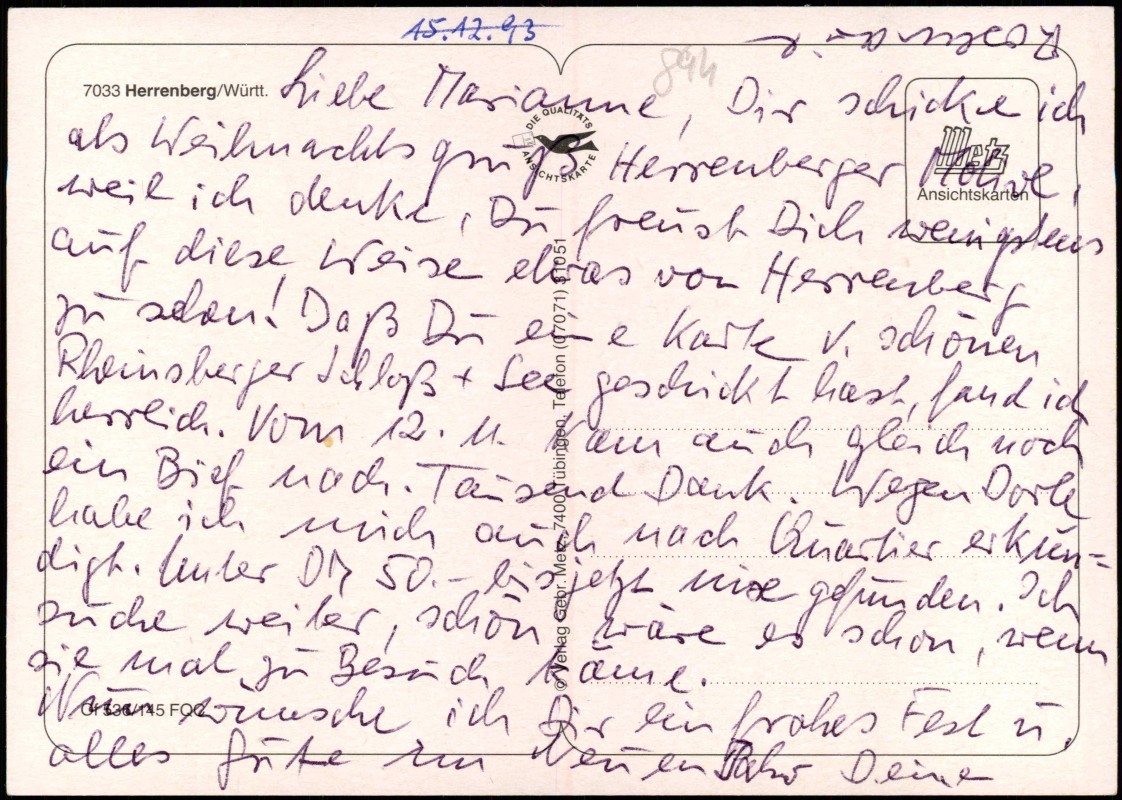 15.12.93
7033 Herrenberg/Württ.
Liebe Marianne, Dir schicke ich
als Weihnachtsgruß Herrenberger Motive,
weil ich denke, Du freust Dich wenigstens
auf diese Weise etwas von Herrenberg
zu sehen! Daß Du eine Karte v. schönen
Rheinsberger Schloß + See geschickt hast, fand ich
herrlich. Vom 12. 11. kam auch gleich noch
ein Brief nach. Tausend Dank. Wegen Dorle
habe ich mich auch nach Quartier erkun=
digt. Unter DM 50.- bis jetzt nix gefunden. Ich
suche weiter, schön wäre es schon, wenn
sie mal zu Besuch käme.
Nun wünsche ich Dir ein frohes Fest u.
alles Gute im Neuen Jahr Deine
Rosemarie
DIE QUALITÄTS
ANSICHTSKARTE
Metz
Ansichtskarten
© Verlag Gebr. Metz, 7400 Tübingen, Telefon (07071) 31051